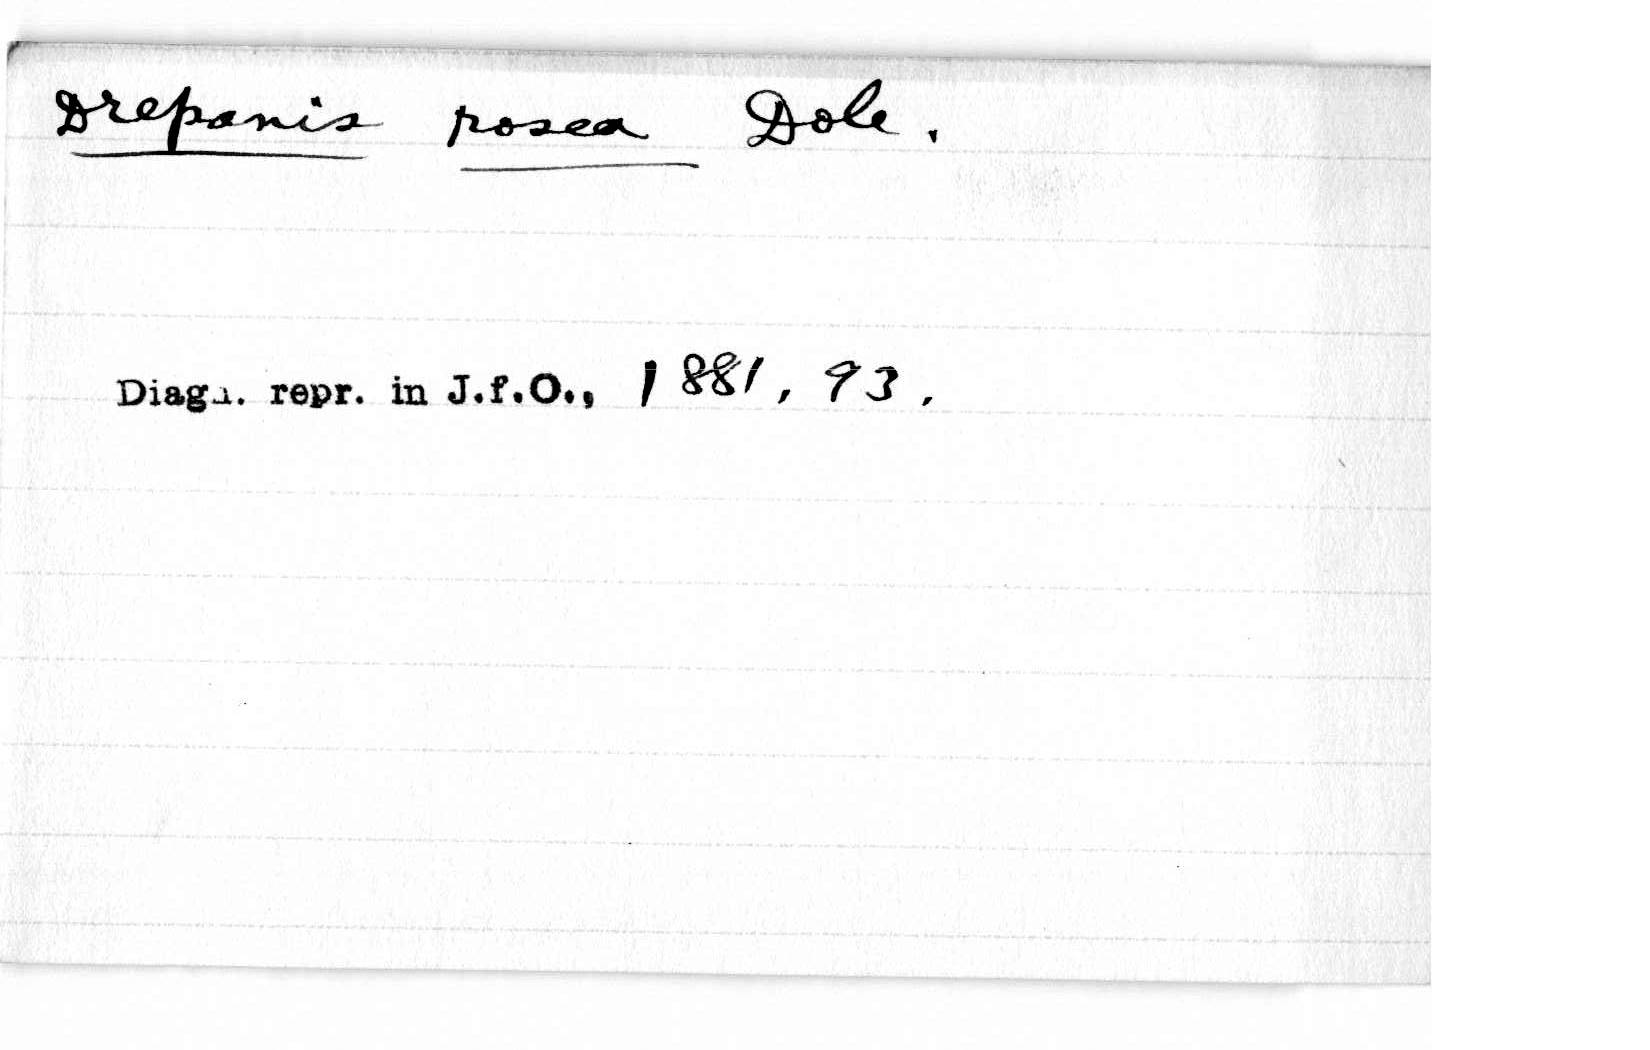 Drepanis rosea Dole.
Diagn. repr. in J.f.O., 1881, 93.